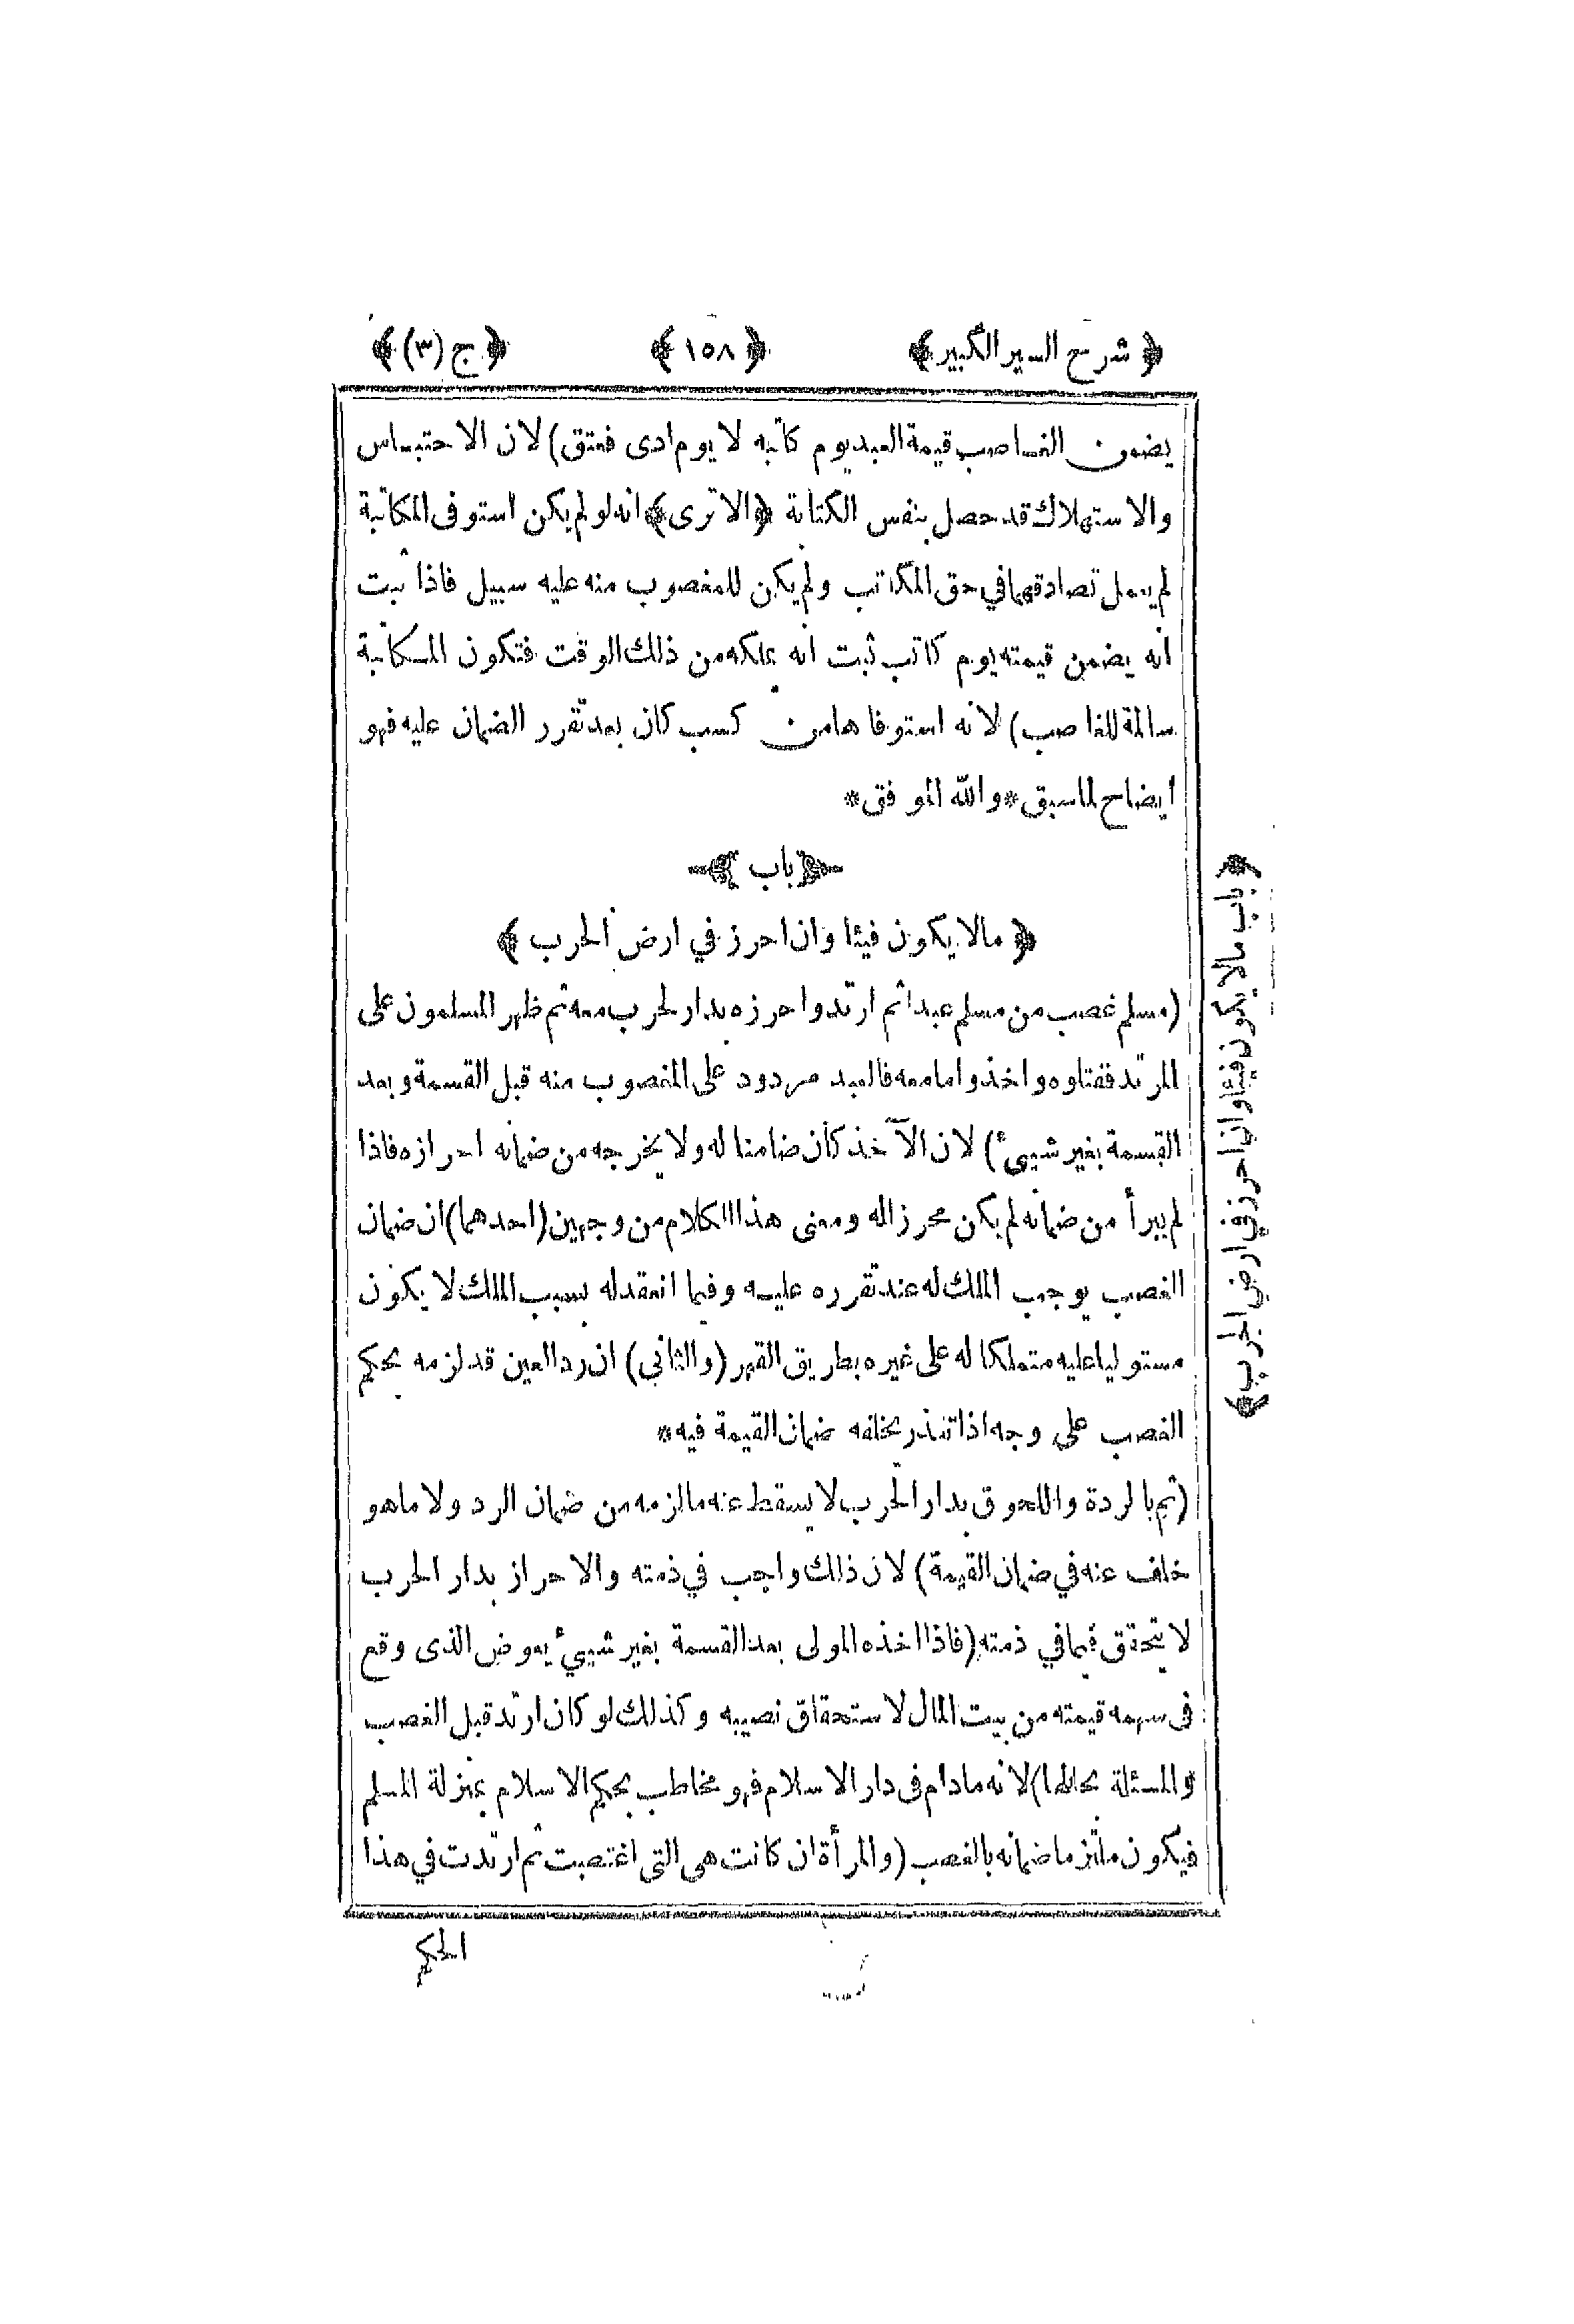 ﴿ شرح السير الكبير ﴾ ﴿ ١٥٨ ﴾ ﴿ ج (٣) ﴾
يضمن الغاصب قيمة العبد يوم كاتبه لا يوم ادى فعتق) لان الاحتباس
والاستهلاك قد حصل بنفس الكتابة ﴿الا ترى﴾ انه لو لم يكن استوفى المكاتبة
لم يعمل تصادقهما في حق المكاتب ولم يكن للمغصوب منه عليه سبيل فاذا ثبت
انه يضمن قيمته يوم كاتب ثبت انه يملكه من ذلك الوقت فتكون المكاتبة
سالمة للغاصب) لانه استوفاها من كسب كان بعد تقرر الضمان عليه فهو
ايضاح لما سبق * والله الموفق *
﴿ باب ﴾
﴿ ما لا يكون فيئا وان احرز في ارض الحرب ﴾
(مسلم غصب من مسلم عبدا ثم ارتد واحرزه بدار لحرب معه ثم ظهر المسلمون على
المرتد فقتلوه واخذوا ما معه فالعبد مردود على المغصوب منه قبل القسمة وبعد
القسمة بغير شييء) لان الآخذ كان ضامنا له ولا يخرجه من ضمانه احرازه فاذا
لم يبرأ من ضمانه لم يكن محرزا له ومعنى هذا الكلام من وجهين (احدهما) ان ضمان
الغصب يوجب الملك له عند تقرره عليه وفيما انعقد له بسبب الملك لا يكون
مستوليا عليه متملكا له على غيره بطريق القهر (والثاني) ان رد العين قد لزمه بحكم
الغصب على وجه اذا تعذر يخلفه ضمان القيمة فيه *
(ثم بالردة واللحوق بدار الحرب لا يسقط عنه ما لزمه من ضمان الرد ولا ما هو
خلف عنه في ضمان القيمة) لان ذلك واجب في ذمته والاحراز بدار الحرب
لا يتحقق فيما في ذمته (فاذا اخذه المولى بعد القسمة بغير شييء يعوض الذى وقع
فى سهمه قيمته من بيت المال لاستحقاق نصيبه وكذلك لو كان ارتد قبل الغصب
والمسئلة بحالها) لانه ما دام فى دار الاسلام فهو مخاطب بحكم الاسلام بمنزلة المسلم
فيكون ملتزما ضمانه بالغصب (والمرأة ان كانت هى التى اغتصبت ثم ارتدت في هذا
الحكم
﴿ باب ما لا يكون فيئا وان احرز في ارض الحرب ﴾